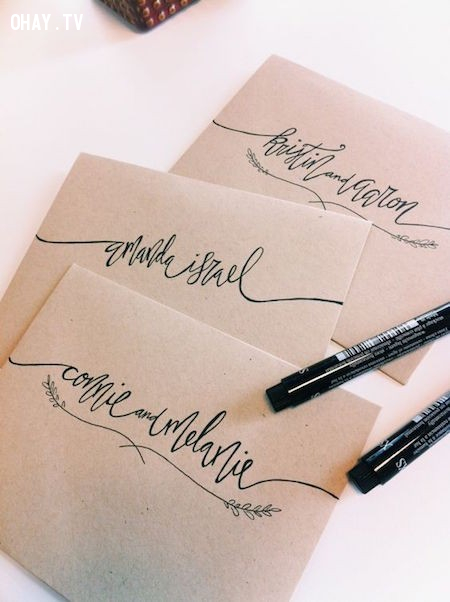 OHAY.TV
kristin and aaron
amanda israel
connie and melanie